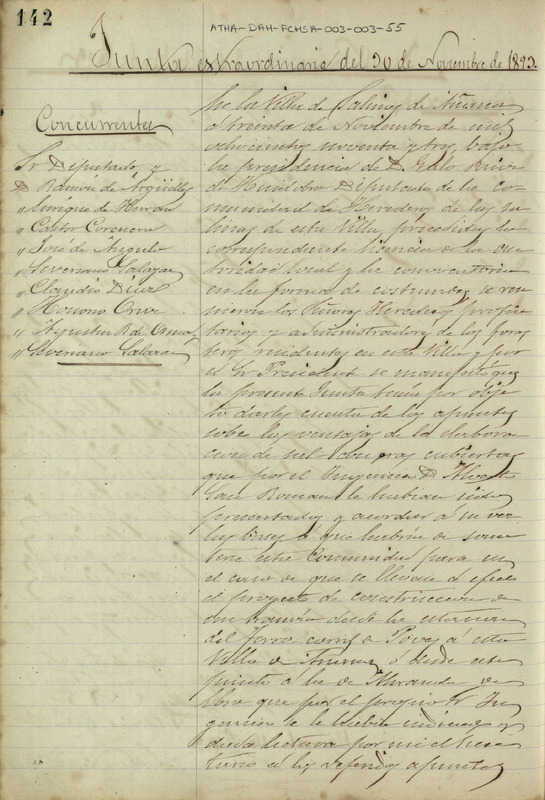 142
ATHA-DAH-FCHSA-003-003-55
Junta extraordinaria del 30 de Noviembre de 1893.
Concurrentes
Sr Diputado y
D Ramon de Argüelles
" Enrique de Herran
" Castor Corcuera
" José de Angulo
" Severiano Salazar
" Claudio Diez
" Honorio
" Agustin R de
" Severiano Salazar
En la Villa de Salinas de Añana
a treinta de Noviembre de mil
ochocientos noventa y tres, bajo
la presidencia de D
de Diputado de la Co-
munidad de Herederos de las Sa-
linas de esta Villa, precedida la
correspondiente licencia de la au-
toridad local y la convocatoria
en la forma de costumbre, se reu-
nieron los Señores Herederos propie-
tarios y administradores de los foras-
teros residentes en esta Villa y por
el Sr Presidente se manifestó que
la presente Junta tenia por obje-
to darles cuenta de los apuntes
sobre las ventajas de la elabora-
cion de sal con eras cubiertas
que por el Ingeniero D
San Roman le habian sido
presentados y acordar á su vez
las bases á que habria de some-
terse esta Comunidad para en
el caso de que se llevase á efecto
el proyecto de construccion de
un tranvia desde la estacion
del ferro carril de Pobes á esta
Villa de Añana, ó desde este
punto á la de Miranda de
Ebro que por el propio Sr In-
geniero se le habia indicado y
dada lectura por mi el Secre-
tario á los referidos apuntes